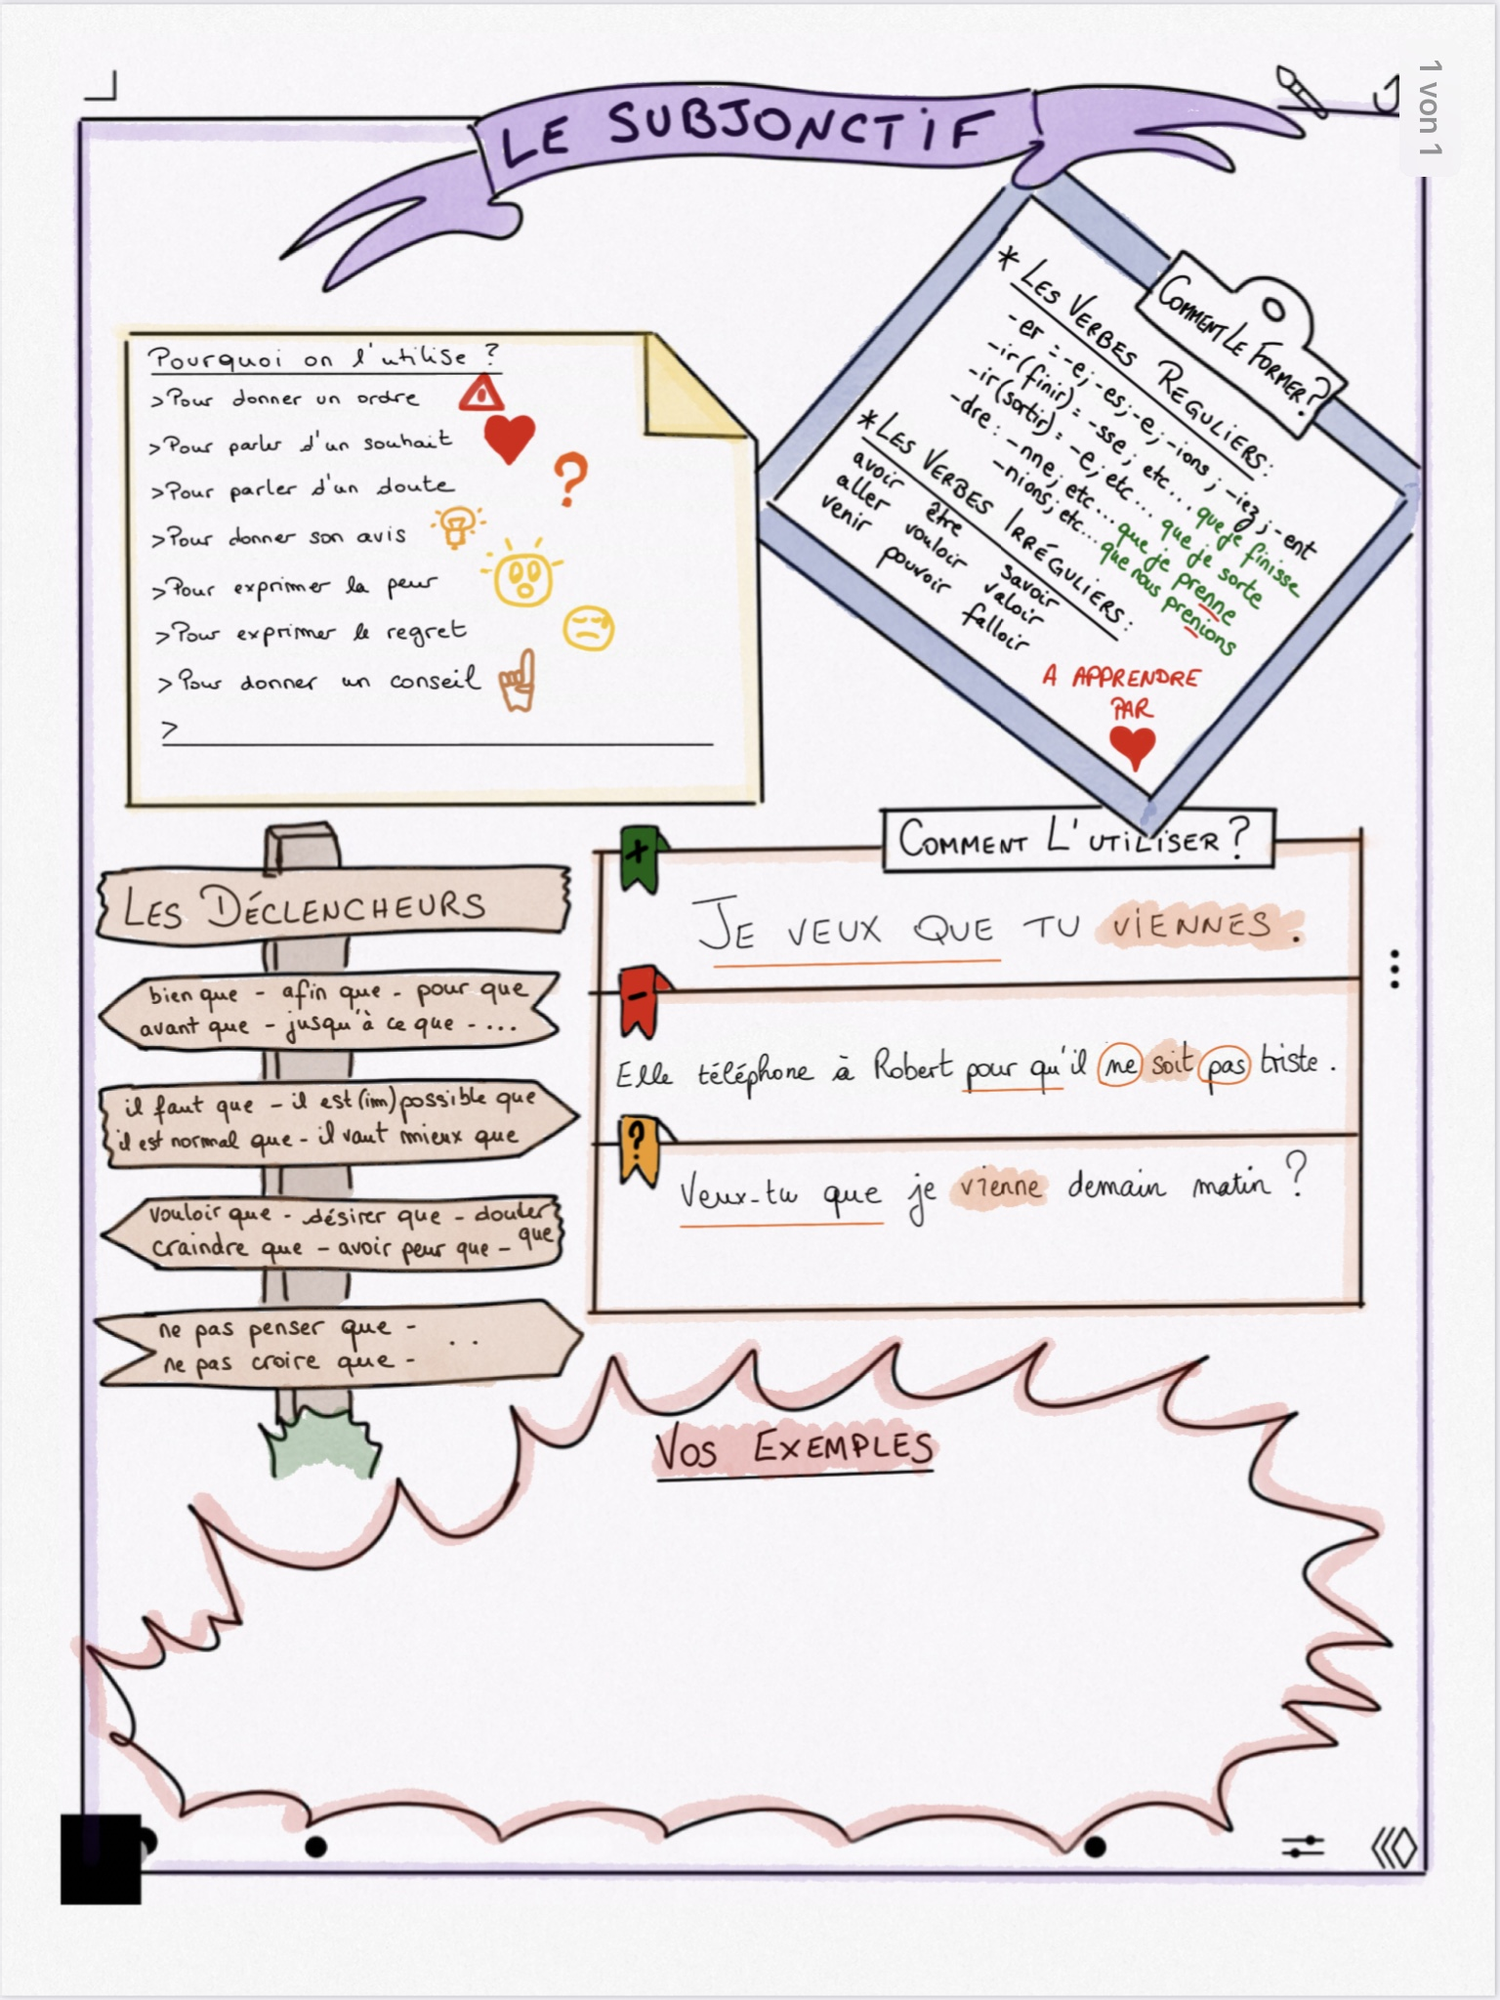 1 von 1
LE SUBJONCTIF
Pourquoi on l'utilise ?
>Pour donner un ordre
>Pour parler d'un souhait
>Pour parler d'un doute
?
>Pour donner son avis
>Pour exprimer la peur
>Pour exprimer le regret
>Pour donner un conseil
>
COMMENT LE FORMER?
* LES VERBES REGULIERS:
-er = -e; -es; -e; -ions; -iez; -ent
-ir (finir) = -sse; etc... que je finisse
-ir (sortir) = -e; etc... que je sorte
-dre : -nne; etc... que je prenne
-nions; etc... que nous prenions
* LES VERBES IRRÉGULIERS:
avoir être savoir
aller vouloir valoir
venir pouvoir falloir
A APPRENDRE
PAR
LES DÉCLENCHEURS
bien que - afin que - pour que
avant que - jusqu'à ce que - ...
il faut que - il est (im)possible que
il est normal que - il vaut mieux que
vouloir que - désirer que - douter
craindre que - avoir peur que - que
ne pas penser que - ..
ne pas croire que -
COMMENT L'UTILISER ?
+
JE VEUX QUE TU VIENNES.
-
Elle téléphone à Robert pour qu'il ne soit pas triste.
?
Veux-tu que je vienne demain matin ?
VOS EXEMPLES